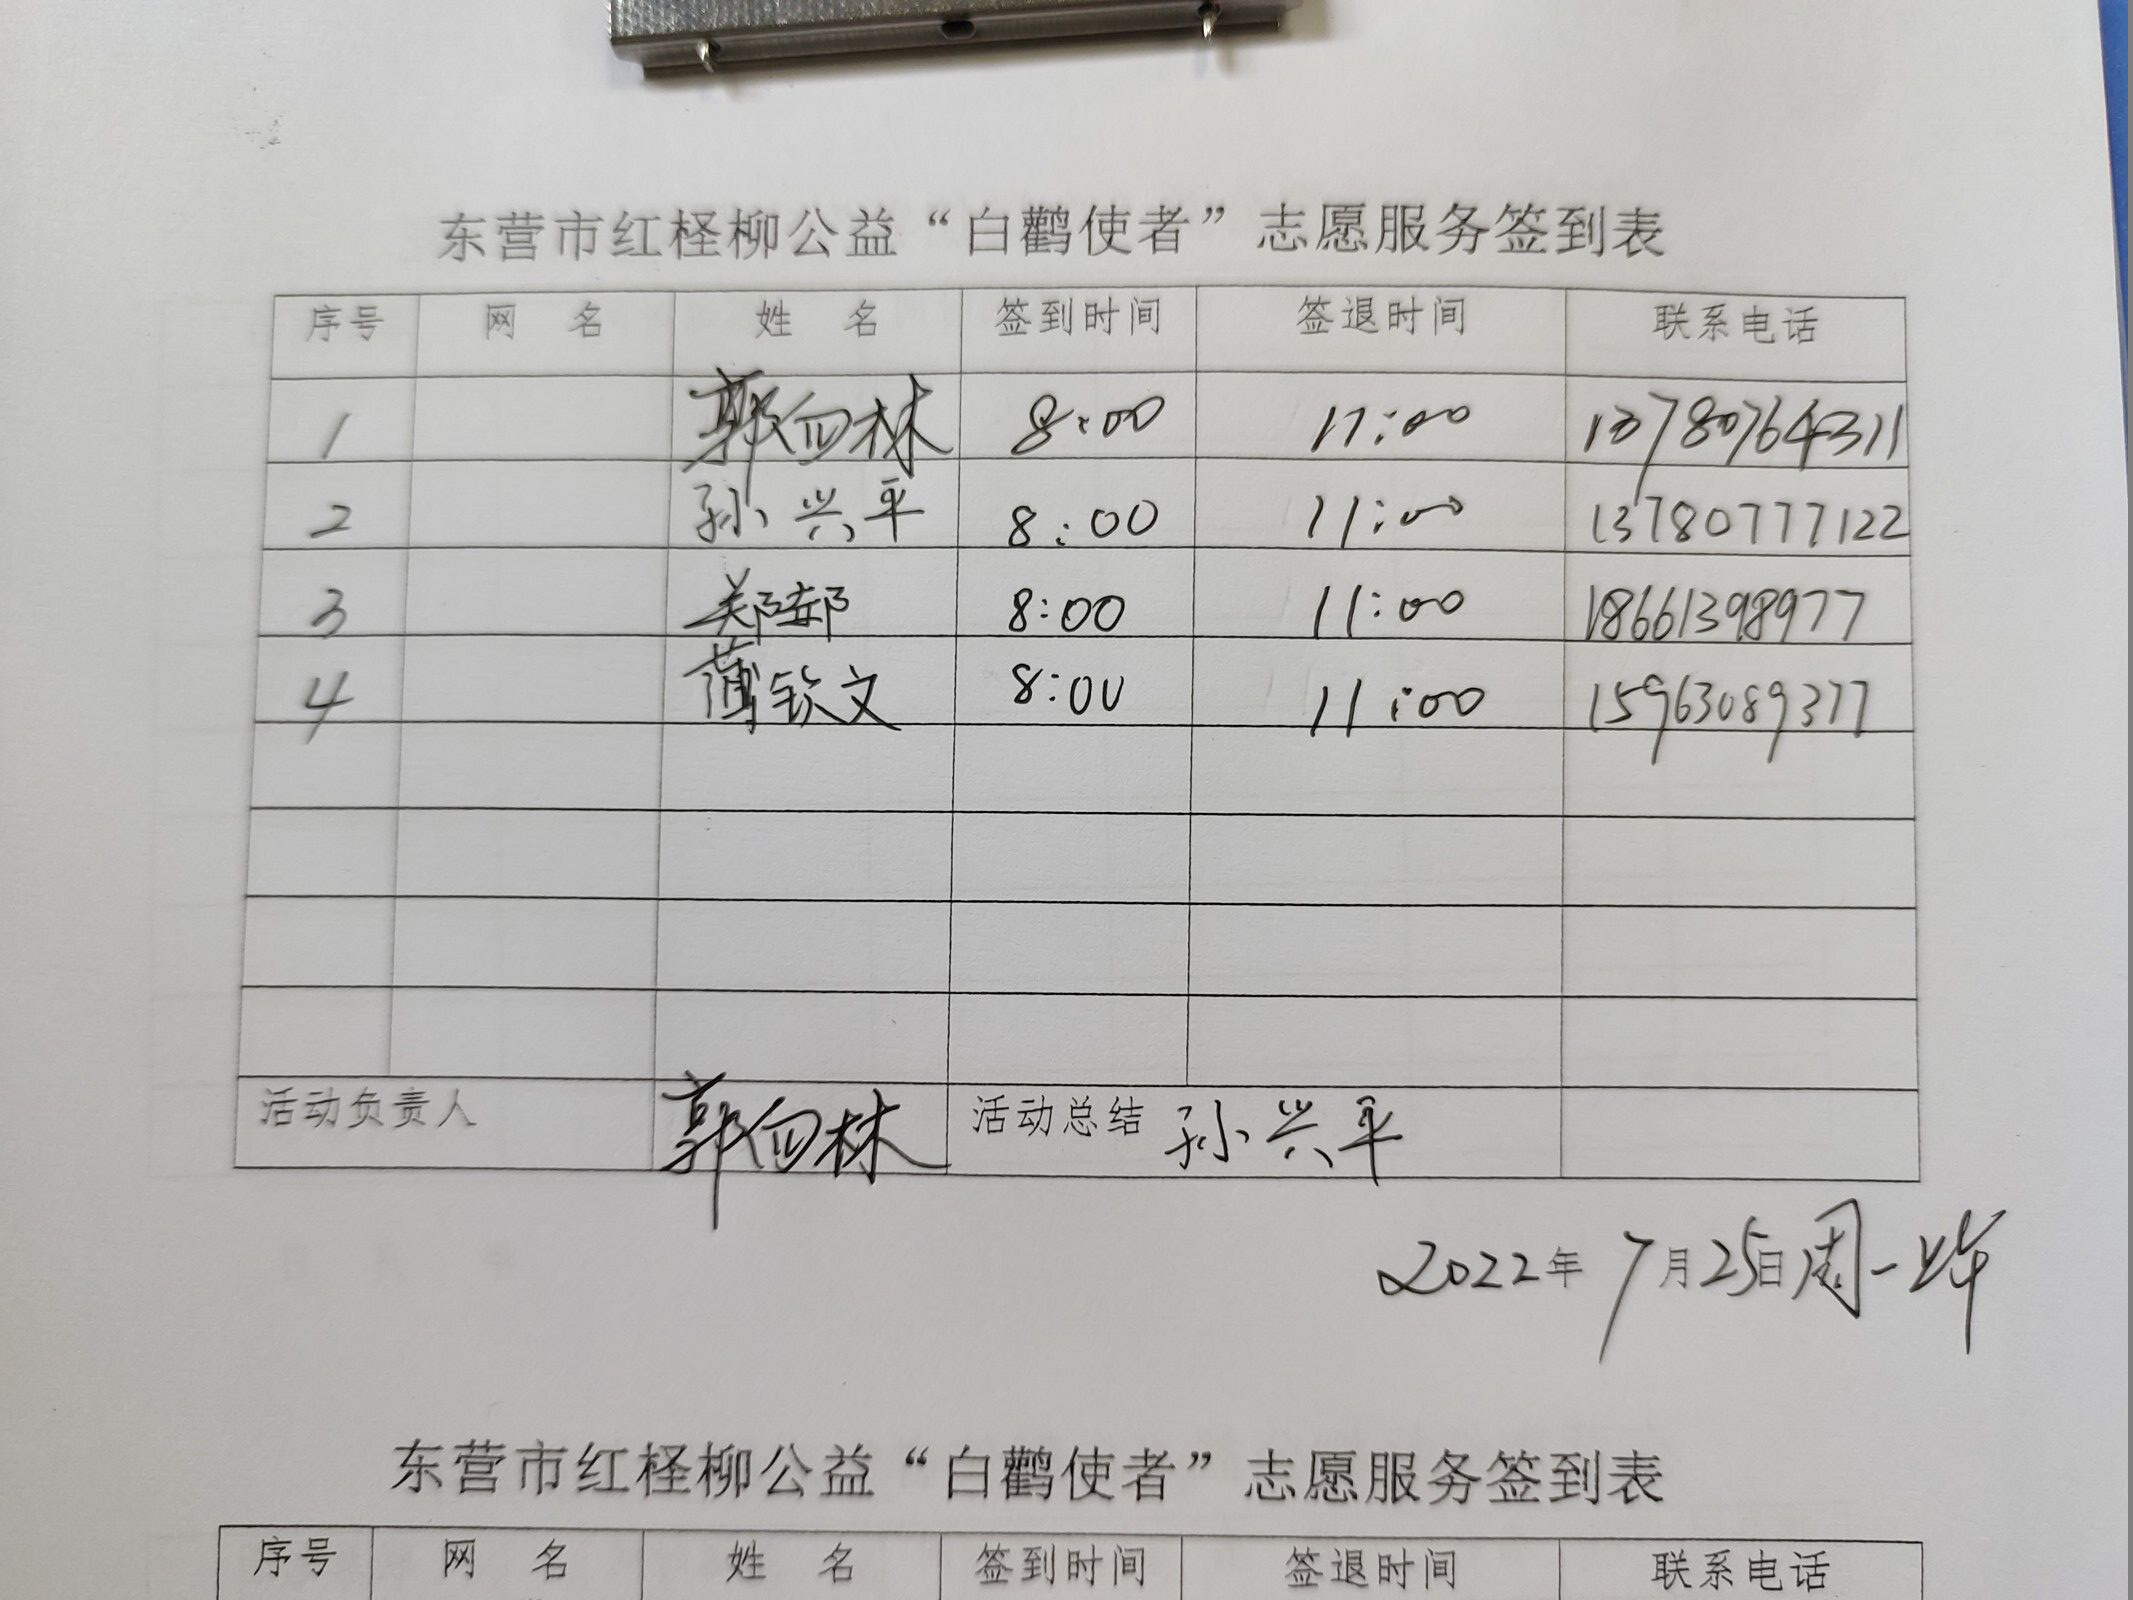 东营市红柽柳公益“白鹳使者”志愿服务签到表
序号 网 名 姓 名 签到时间 签退时间 联系电话
1 郭向林 8:00 11:00 13780764311
2 孙兴平 8:00 11:00 13780777122
3 郑 8:00 11:00 18661398977
4 薄钦文 8:00 11:00 15963089377
活动负责人 郭向林 活动总结 孙兴平
2022年7月25日周一上午
东营市红柽柳公益“白鹳使者”志愿服务签到表
序号 网 名 姓 名 签到时间 签退时间 联系电话